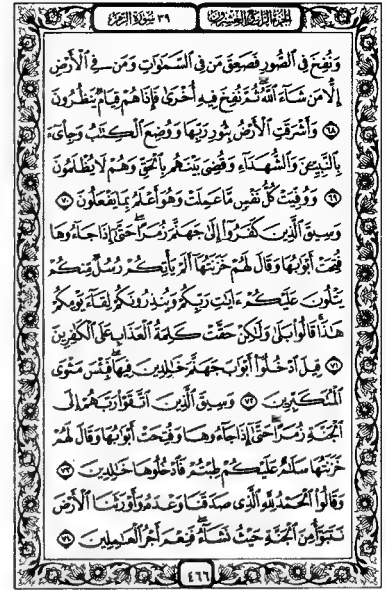 الجزء الرابع والعشرون ٣٩ سورة الزمر
وَنُفِخَ فِي ٱلصُّورِ فَصَعِقَ مَن فِي ٱلسَّمَٰوَٰتِ وَمَن فِي ٱلْأَرْضِ
إِلَّا مَن شَآءَ ٱللَّهُ ثُمَّ نُفِخَ فِيهِ أُخْرَىٰ فَإِذَا هُمْ قِيَامٌ يَنظُرُونَ
٦٨ وَأَشْرَقَتِ ٱلْأَرْضُ بِنُورِ رَبِّهَا وَوُضِعَ ٱلْكِتَٰبُ وَجِا۟ىٓءَ
بِٱلنَّبِيِّۦنَ وَٱلشُّهَدَآءِ وَقُضِيَ بَيْنَهُم بِٱلْحَقِّ وَهُمْ لَا يُظْلَمُونَ
٦٩ وَوُفِّيَتْ كُلُّ نَفْسٍ مَّا عَمِلَتْ وَهُوَ أَعْلَمُ بِمَا يَفْعَلُونَ ٧٠
وَسِيقَ ٱلَّذِينَ كَفَرُوٓا۟ إِلَىٰ جَهَنَّمَ زُمَرًا حَتَّىٰٓ إِذَا جَآءُوهَا
فُتِحَتْ أَبْوَٰبُهَا وَقَالَ لَهُمْ خَزَنَتُهَآ أَلَمْ يَأْتِكُمْ رُسُلٌ مِّنكُمْ
يَتْلُونَ عَلَيْكُمْ ءَايَٰتِ رَبِّكُمْ وَيُنذِرُونَكُمْ لِقَآءَ يَوْمِكُمْ
هَٰذَا قَالُوا۟ بَلَىٰ وَلَٰكِنْ حَقَّتْ كَلِمَةُ ٱلْعَذَابِ عَلَى ٱلْكَٰفِرِينَ
٧١ قِيلَ ٱدْخُلُوٓا۟ أَبْوَٰبَ جَهَنَّمَ خَٰلِدِينَ فِيهَا فَبِئْسَ مَثْوَى
ٱلْمُتَكَبِّرِينَ ٧٢ وَسِيقَ ٱلَّذِينَ ٱتَّقَوْا۟ رَبَّهُمْ إِلَى
ٱلْجَنَّةِ زُمَرًا حَتَّىٰٓ إِذَا جَآءُوهَا وَفُتِحَتْ أَبْوَٰبُهَا وَقَالَ لَهُمْ
خَزَنَتُهَا سَلَٰمٌ عَلَيْكُمْ طِبْتُمْ فَٱدْخُلُوهَا خَٰلِدِينَ ٧٣
وَقَالُوا۟ ٱلْحَمْدُ لِلَّهِ ٱلَّذِي صَدَقَنَا وَعْدَهُۥ وَأَوْرَثَنَا ٱلْأَرْضَ
نَتَبَوَّأُ مِنَ ٱلْجَنَّةِ حَيْثُ نَشَآءُ فَنِعْمَ أَجْرُ ٱلْعَٰمِلِينَ ٧٤
٤٦٦